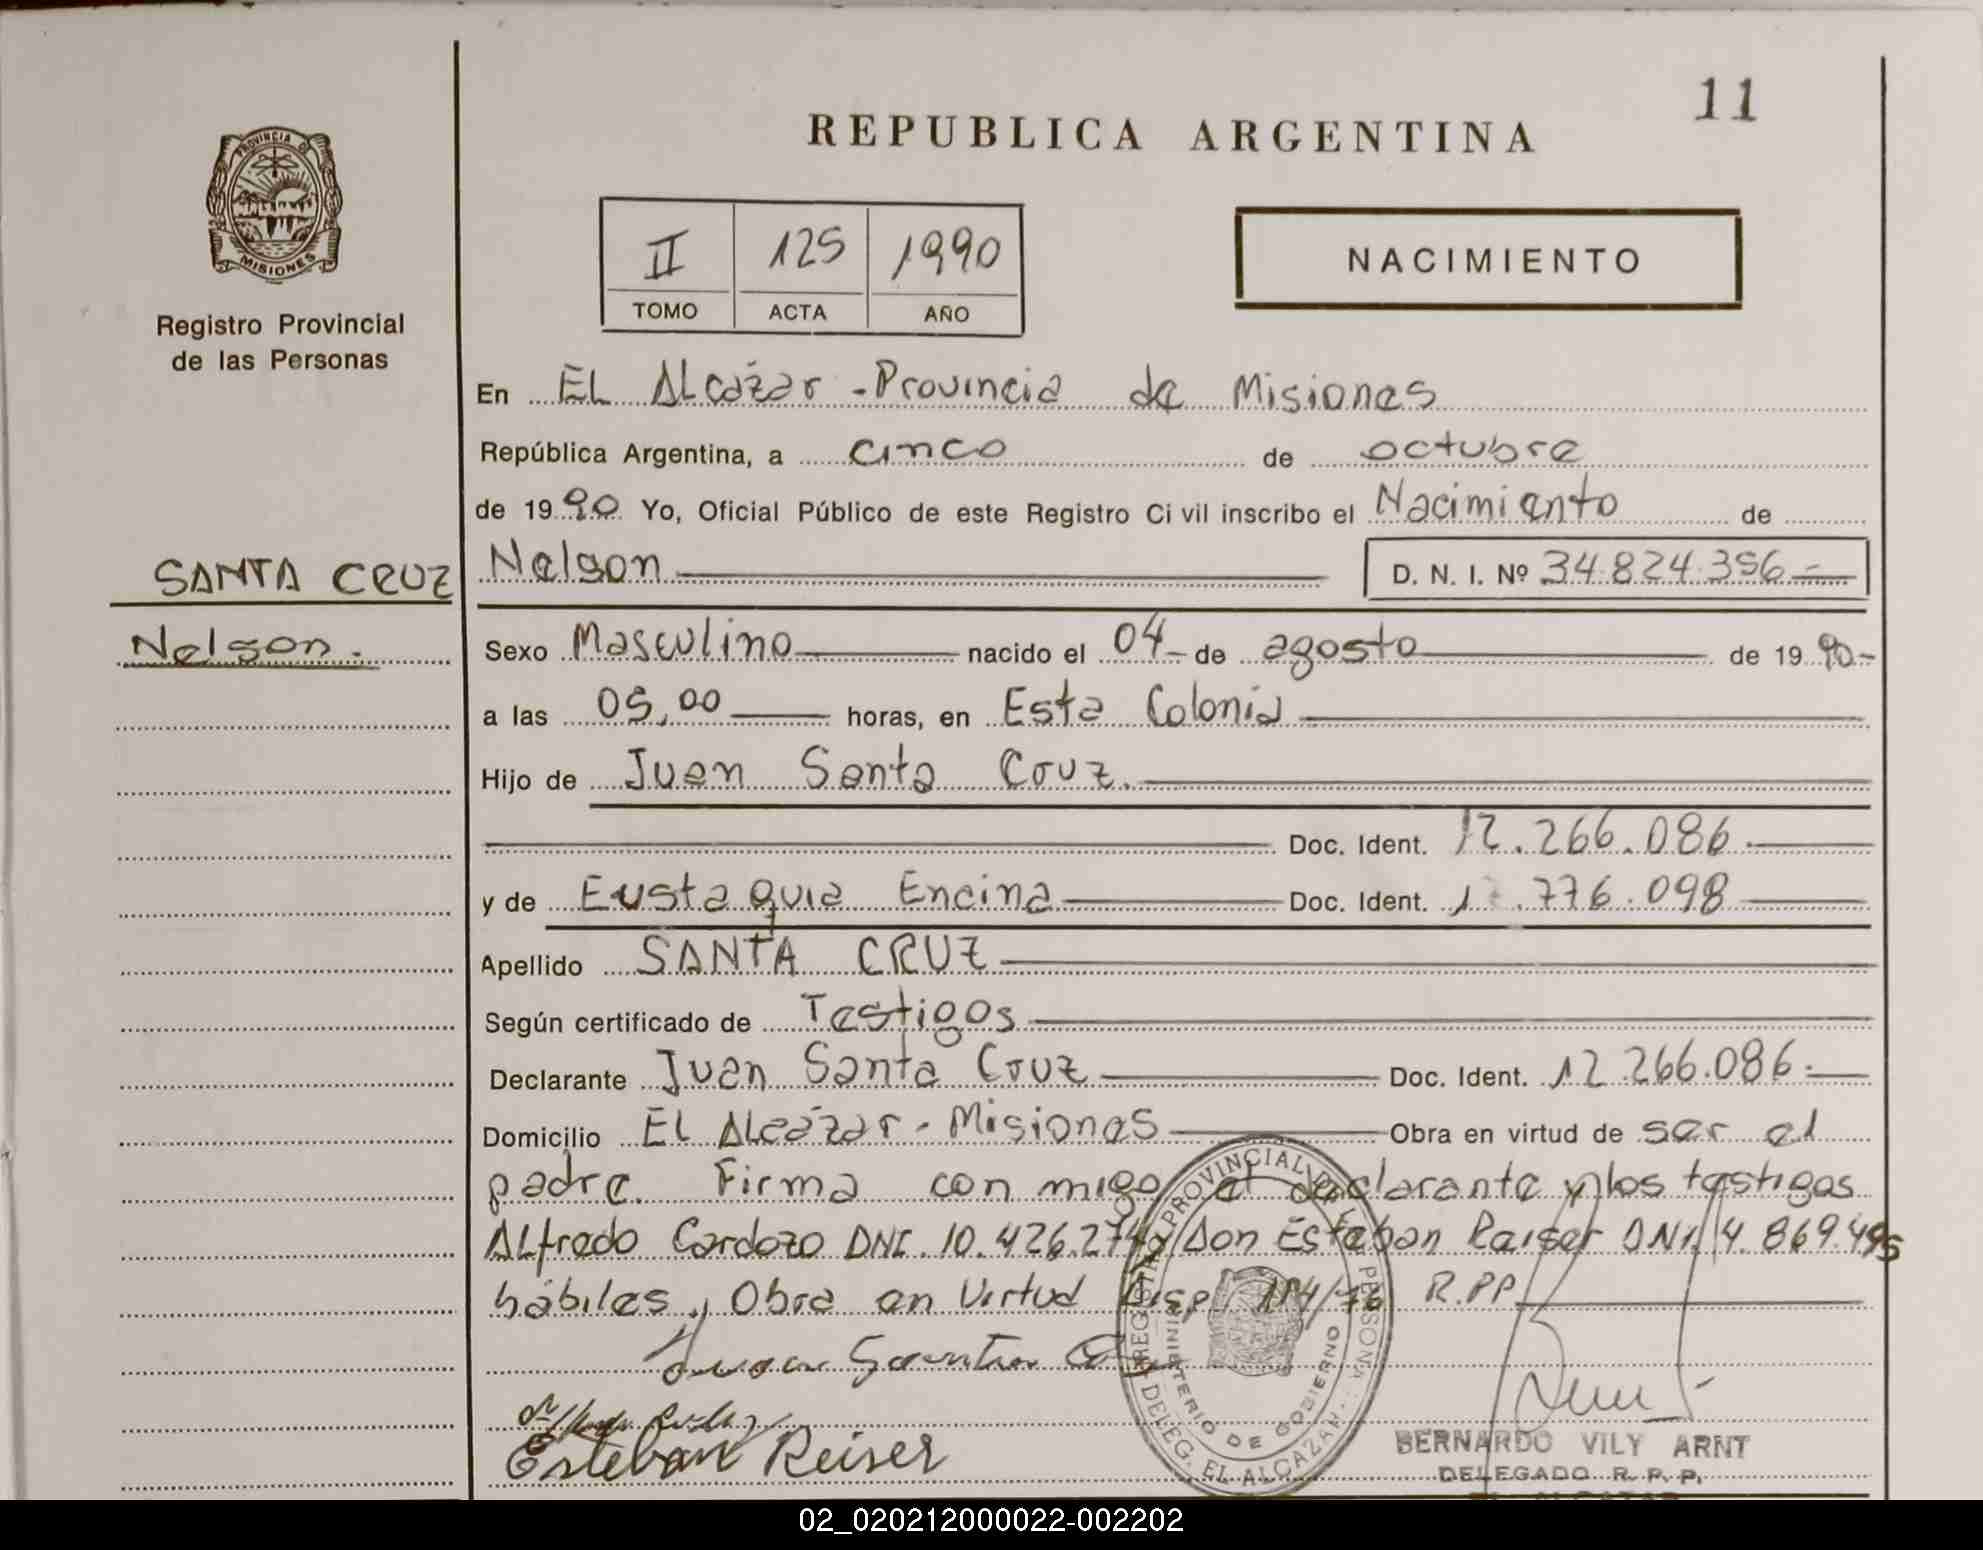 11
REPUBLICA ARGENTINA
PROVINCIA DE
MISIONES
Registro Provincial
de las Personas
II 125 1990
TOMO ACTA AÑO
NACIMIENTO
En EL ALcázar - Provincia de Misiones
República Argentina, a cinco de octubre
de 1990 Yo, Oficial Público de este Registro Civil inscribo el Nacimiento de
SANTA CRUZ
Nelson D. N. I. Nº 34.824.356.-
Nelson.
Sexo Masculino nacido el 04 de agosto de 1990-
a las 05,00 horas, en Esta Colonia
Hijo de Juan Santa Cruz.
Doc. Ident. 12.266.086.
y de Eustaquia Encina Doc. Ident. .776.098
Apellido SANTA CRUZ
Según certificado de Testigos
Declarante Juan Santa Cruz Doc. Ident. 12.266.086.
Domicilio EL ALcázar - Misiones Obra en virtud de ser el
padre. Firma con migo el declarante y los testigos
ALfredo Cardozo DNI. 10.426.274 y Don Esteban Raiser DNI. 4.869.495
hábiles, Obra en Virtud Disp. 114/76 R.PP
Juan Santa
Esteban Reiser
REGISTRO PROVINCIAL DE LAS PERSONAS
MINISTERIO DE GOBIERNO
DELEG. EL ALCAZAR
BERNARDO VILY ARNT
DELEGADO R. P. P.
EL ALCAZAR
02_020212000022-002202